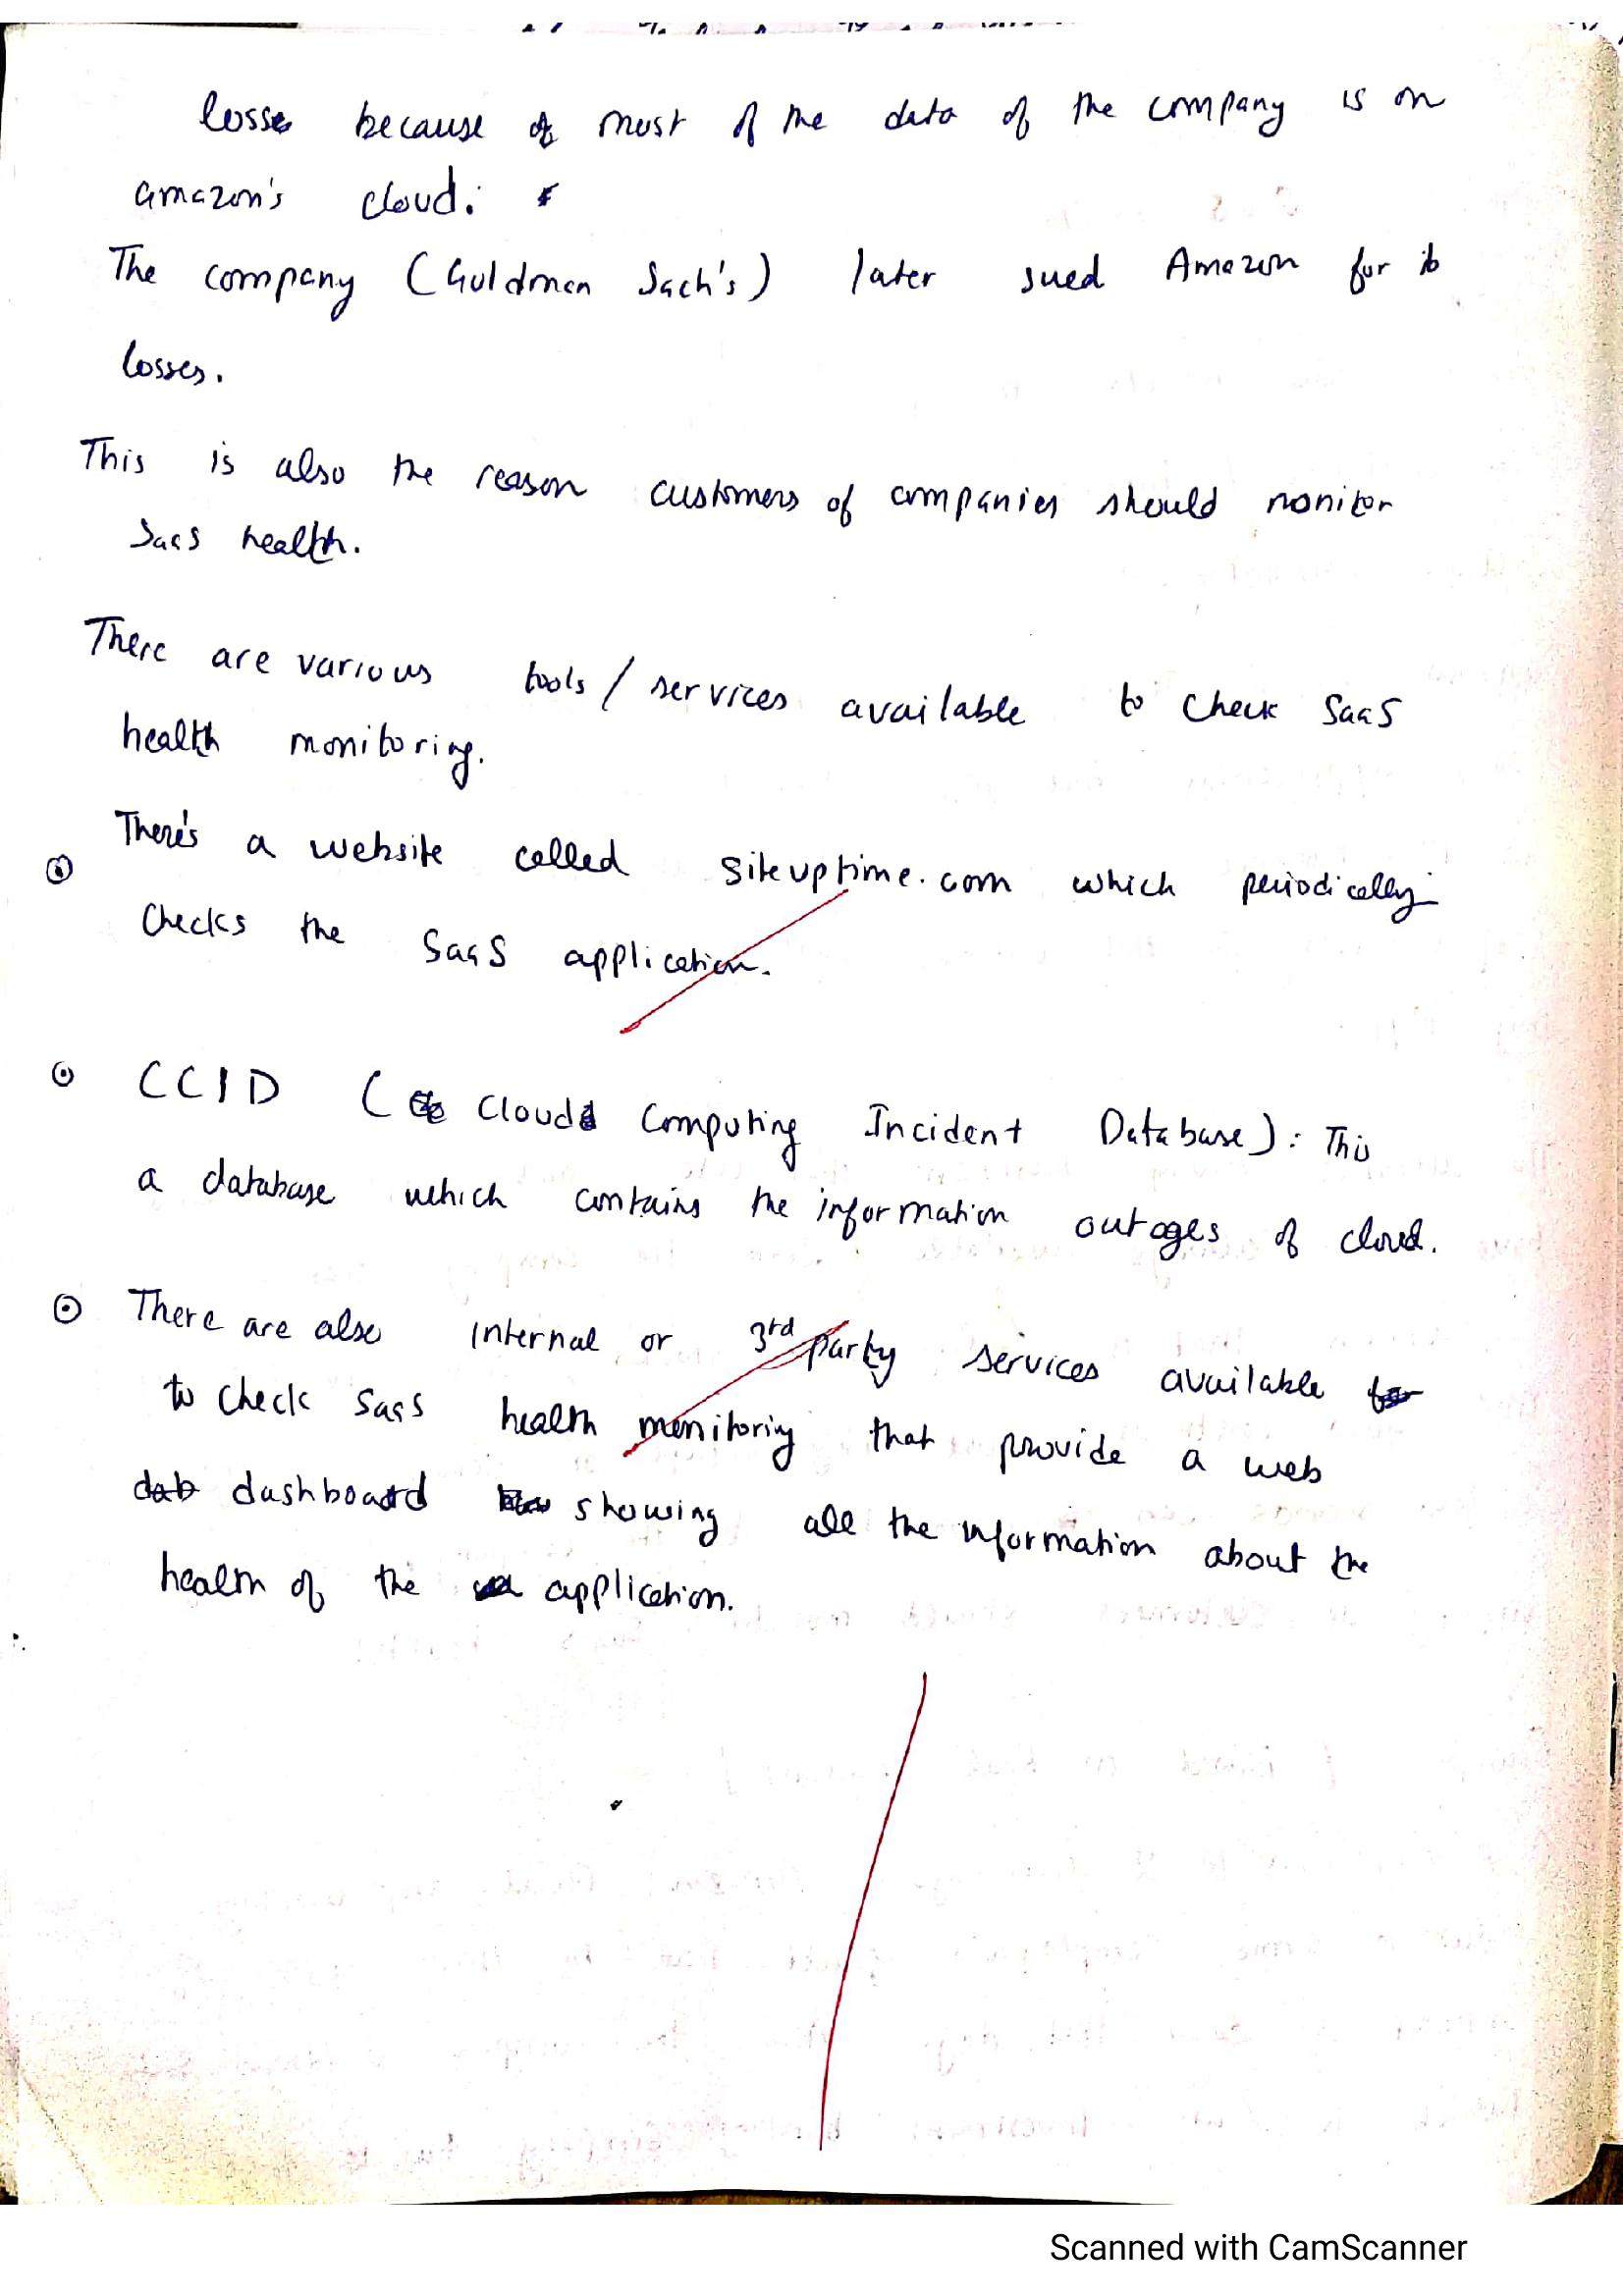 losses because of most of the data of the company is on
amazon's cloud.
The company (Goldman Sach's) later sued Amazon for its
losses.
This is also the reason customers of companies should monitor
SaaS health.
There are various tools/services available to check SaaS
health monitoring.
There's a website called siteuptime.com which periodically
checks the SaaS application.
CCID (Cloud Computing Incident Database): This
a database which contains the information outages of cloud.
There are also internal or 3rd party services available
to check SaaS health monitoring that provide a web
dashboard showing all the information about the
health of the application.
Scanned with CamScanner